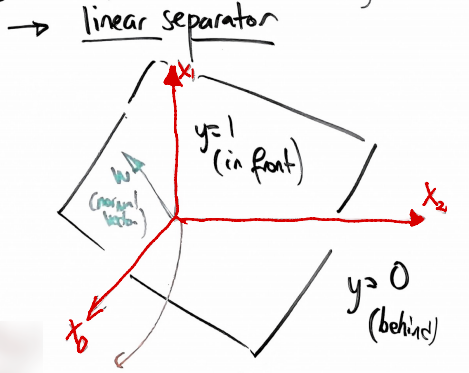 → linear separator
x₁
y=1
(in front)
w
(normal
vector)
x₂
x₀
y=0
(behind)